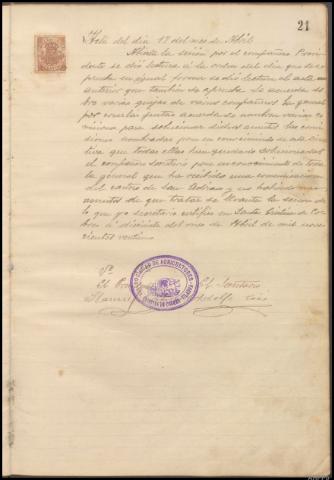 21
Acta del dia 18 del mes de Abril
Abierta la sesion por el compañero Presi
dente se dió lectura á la orden del dia que se a
prueba en igual forma se dió lectura al acta
anterior que tambien se aprueba. Se acuerda so
bre varias quejas de varios compañeros
por acuerdo se nombra varias co
misiones para solucionar dichos asuntos las comi
siones nombradas
tiva que todas ellas han quedado solucionadas
el compañero secretario pone en conocimiento de toda
la general que ha recibido una comunicacion
del centro de San Adrian y no habiendo mas
asuntos de que tratar se levanta la sesion de
lo que yo secretario certifico en Santa Cristina de Co
bres á diecisiete del mes de Abril de mil nove
cientos veinte
Vº
El Secretario
Adolfo